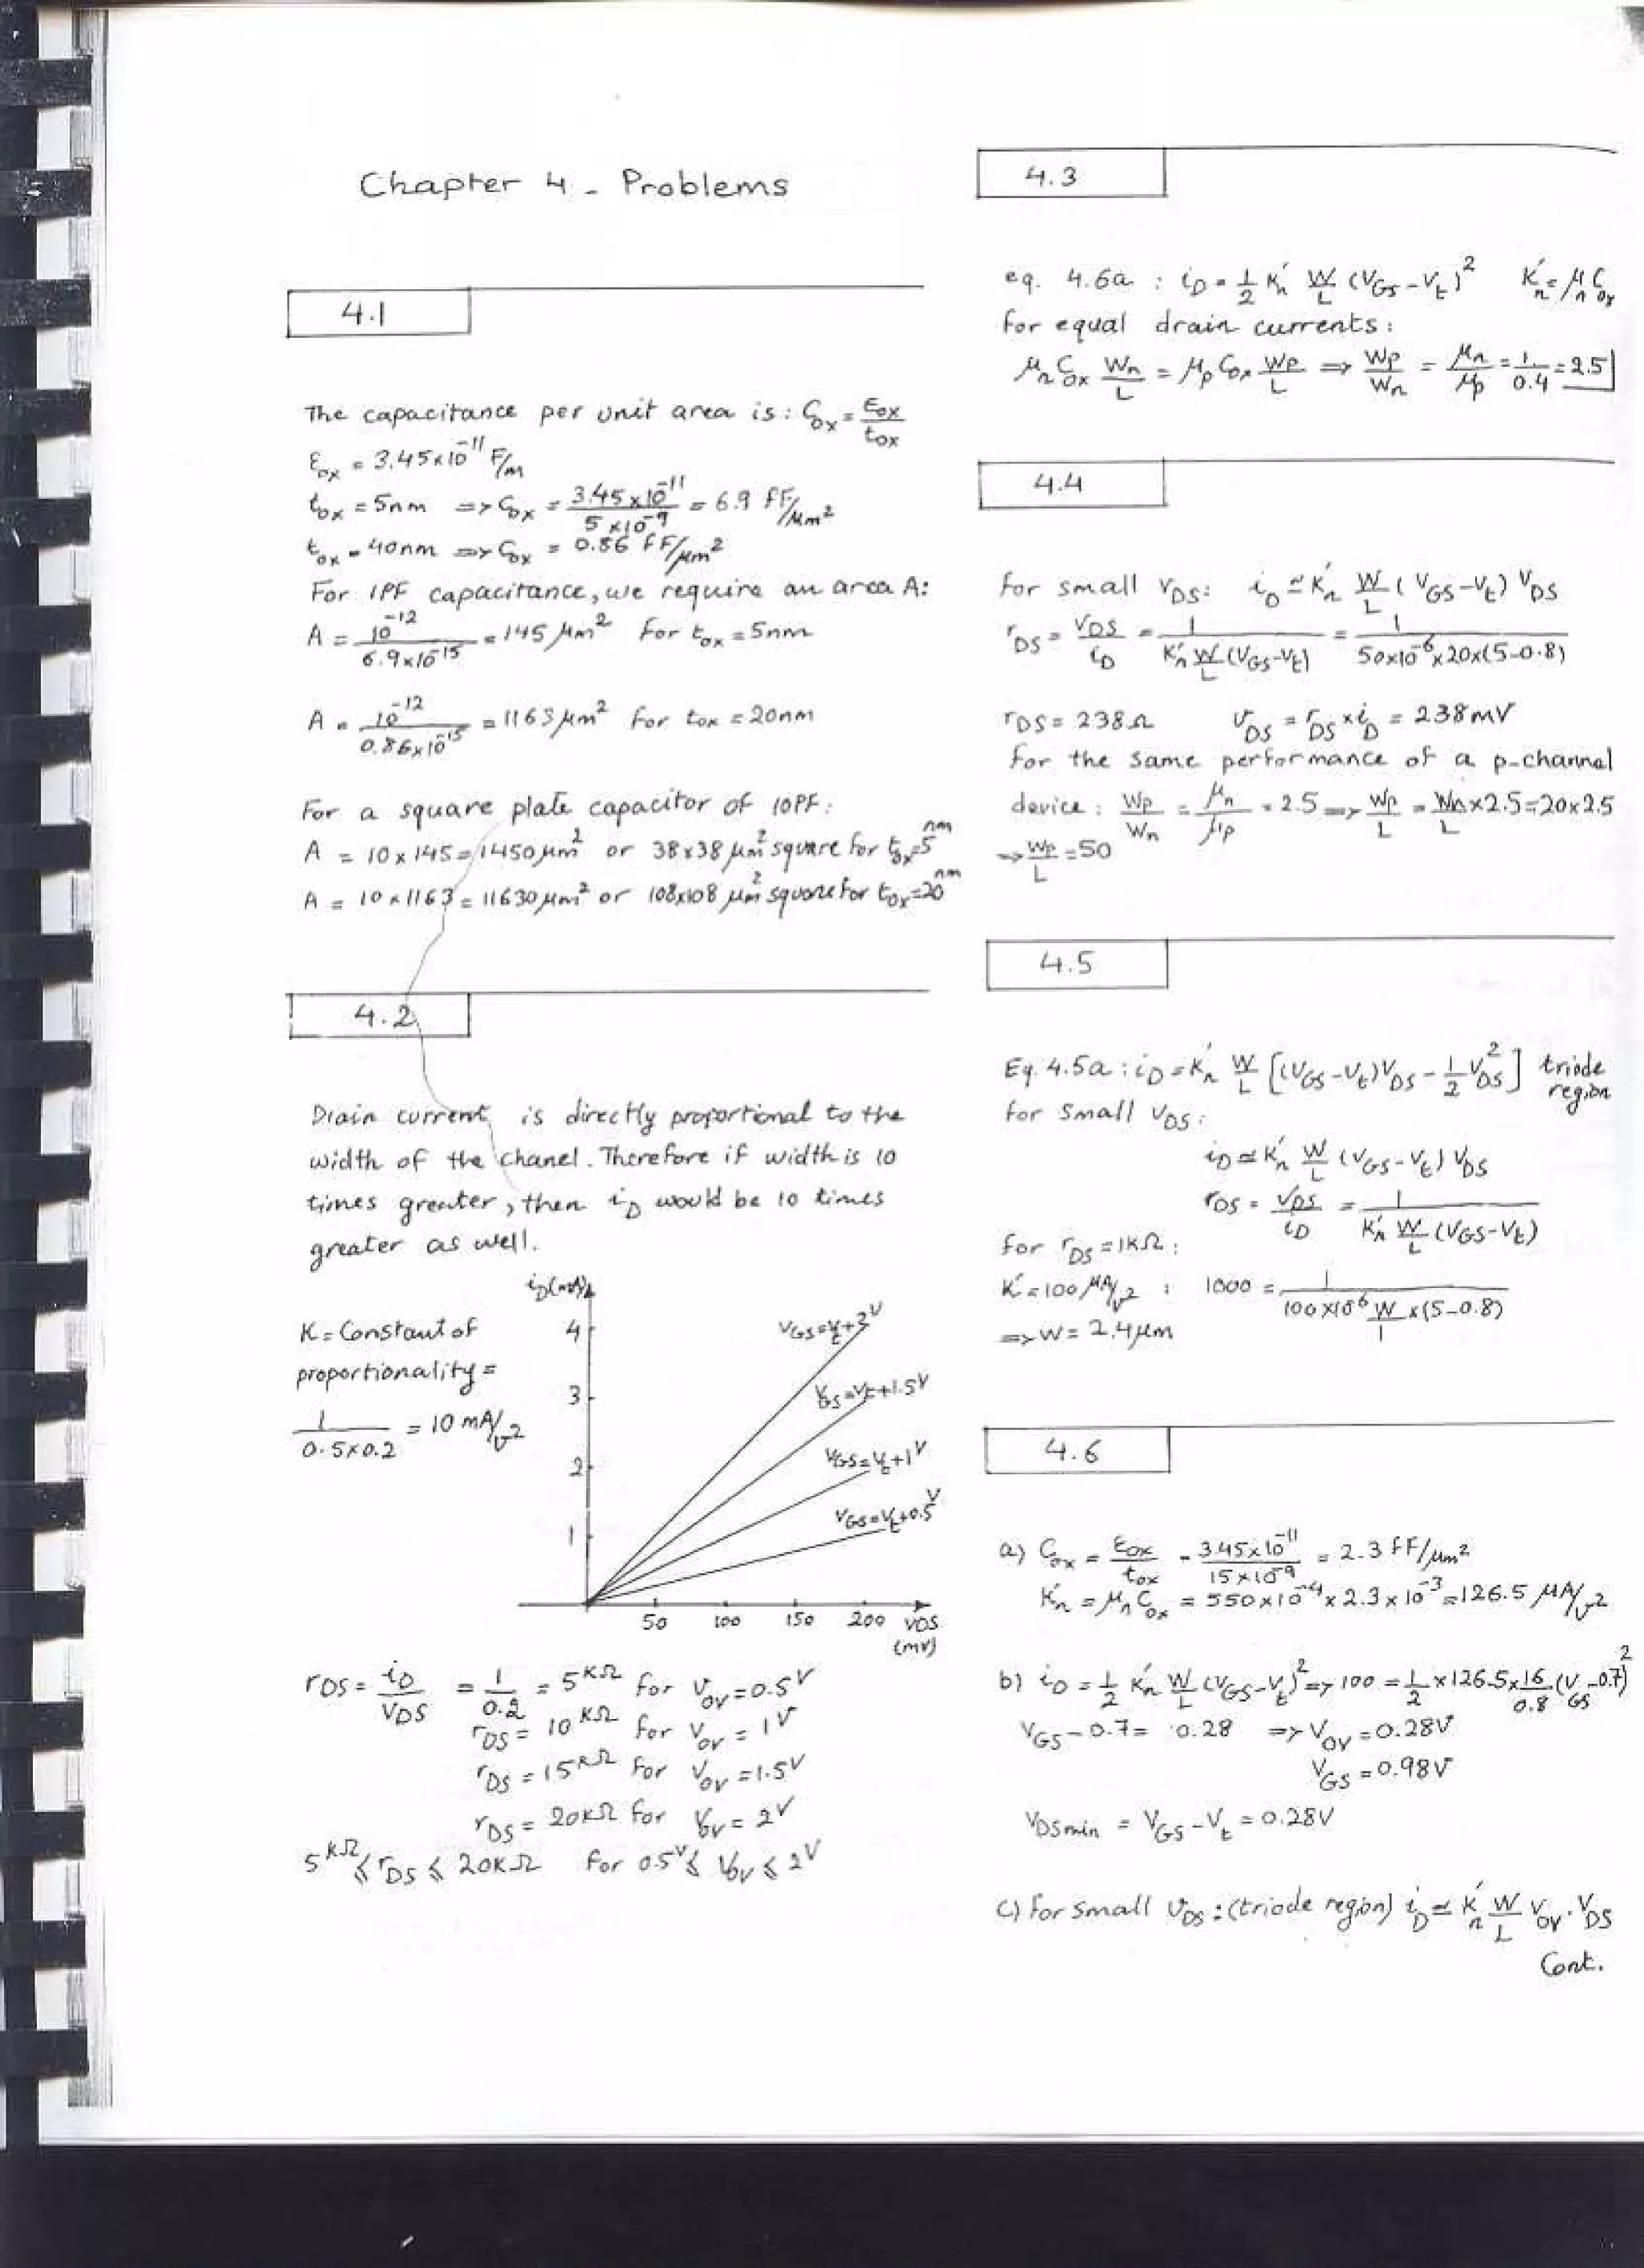 Chapter 4 - Problems
4.1
The capacitance per unit area is: Cox = εox/tox
εox = 3.45x10^-11 F/m
tox = 5nm => Cox = 3.45x10^-11 / 5x10^-9 = 6.9 fF/μm²
tox = 40nm => Cox = 0.86 fF/μm²
For 1PF capacitance, we require an area A:
A = 10^-12 / 6.9x10^-15 = 145 μm² For tox = 5nm
A = 10^-12 / 0.86x10^-15 = 1163 μm² For tox = 20nm
For a square plate capacitor of 10PF:
A = 10x145 = 1450μm² or 38x38 μm² square for tox=5nm
A = 10x1163 = 11630μm² or 108x108 μm² square for tox=20nm
4.2
Drain current is directly proportional to the
width of the chanel. Therefore if width is 10
times greater, then iD would be 10 times
greater as well.
K = Constant of
proportionality =
1 / 0.5x0.2 = 10 mA/V²
iD(mA)
4
3
2
1
VGS=Vt+2V
VGS=Vt+1.5V
VGS=Vt+1V
VGS=Vt+0.5V
50 100 150 200 VDS
(mV)
rDS = iD/VDS = 1/0.2 = 5KΩ for VOV=0.5V
rDS = 10KΩ for VOV = 1V
rDS = 15KΩ for VOV = 1.5V
rDS = 20KΩ for VOV = 2V
5KΩ ≤ rDS ≤ 20KΩ for 0.5V ≤ VOV ≤ 2V
4.3
eq. 4.6a : iD = 1/2 K'n W/L (VGS-Vt)² K'n = μn Cox
for equal drain currents:
μn Cox Wn/L = μp Cox Wp/L => Wp/Wn = μn/μp = 1/0.4 = 2.5
4.4
For small VDS: iD ≃ K'n W/L (VGS-Vt) VDS
rDS = VDS/iD = 1 / K'n W/L (VGS-Vt) = 1 / 50x10^-6 x20x(5-0.8)
rDS = 238Ω VDS = rDS x iD = 238mV
for the same performance of a p-channel
device: Wp/Wn = μn/μp = 2.5 => Wp/L = Wn/L x2.5=20x2.5
=> Wp/L = 50
4.5
Eq 4.5a : iD = K'n W/L [(VGS-Vt)VDS - 1/2 VDS²] triode region
for small VDS:
iD ≃ K'n W/L (VGS-Vt) VDS
rDS = VDS/iD = 1 / K'n W/L (VGS-Vt)
for rDS = 1KΩ :
K' = 100 μA/V² : 1000 = 1 / 100x10^-6 W/1 x(5-0.8)
=> W = 2.4μm
4.6
a) Cox = εox/tox = 3.45x10^-11 / 15x10^-9 = 2.3 fF/μm²
K'n = μn Cox = 550x10^-4 x 2.3x10^-3 = 126.5 μA/V²
b) iD = 1/2 K'n W/L (VGS-Vt)² => 100 = 1/2 x126.5x 16/0.8 (VGS-0.7)²
VGS - 0.7 = 0.28 => VOV = 0.28V
VGS = 0.98V
VDSmin = VGS - Vt = 0.28V
c) For small VDS : (triode region) iD ≃ K'n W/L VOV . VDS
Cont.